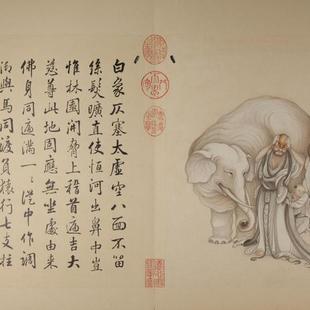 白象仄塞大虛空八面不留
絲髮曠直使恒河出鼻中豈
惟林園開脅上稽首遍吉大
慈尊此地因應無坐處由來
佛身同遍滿一一中作調
御與馬同渡負轅行七支拄